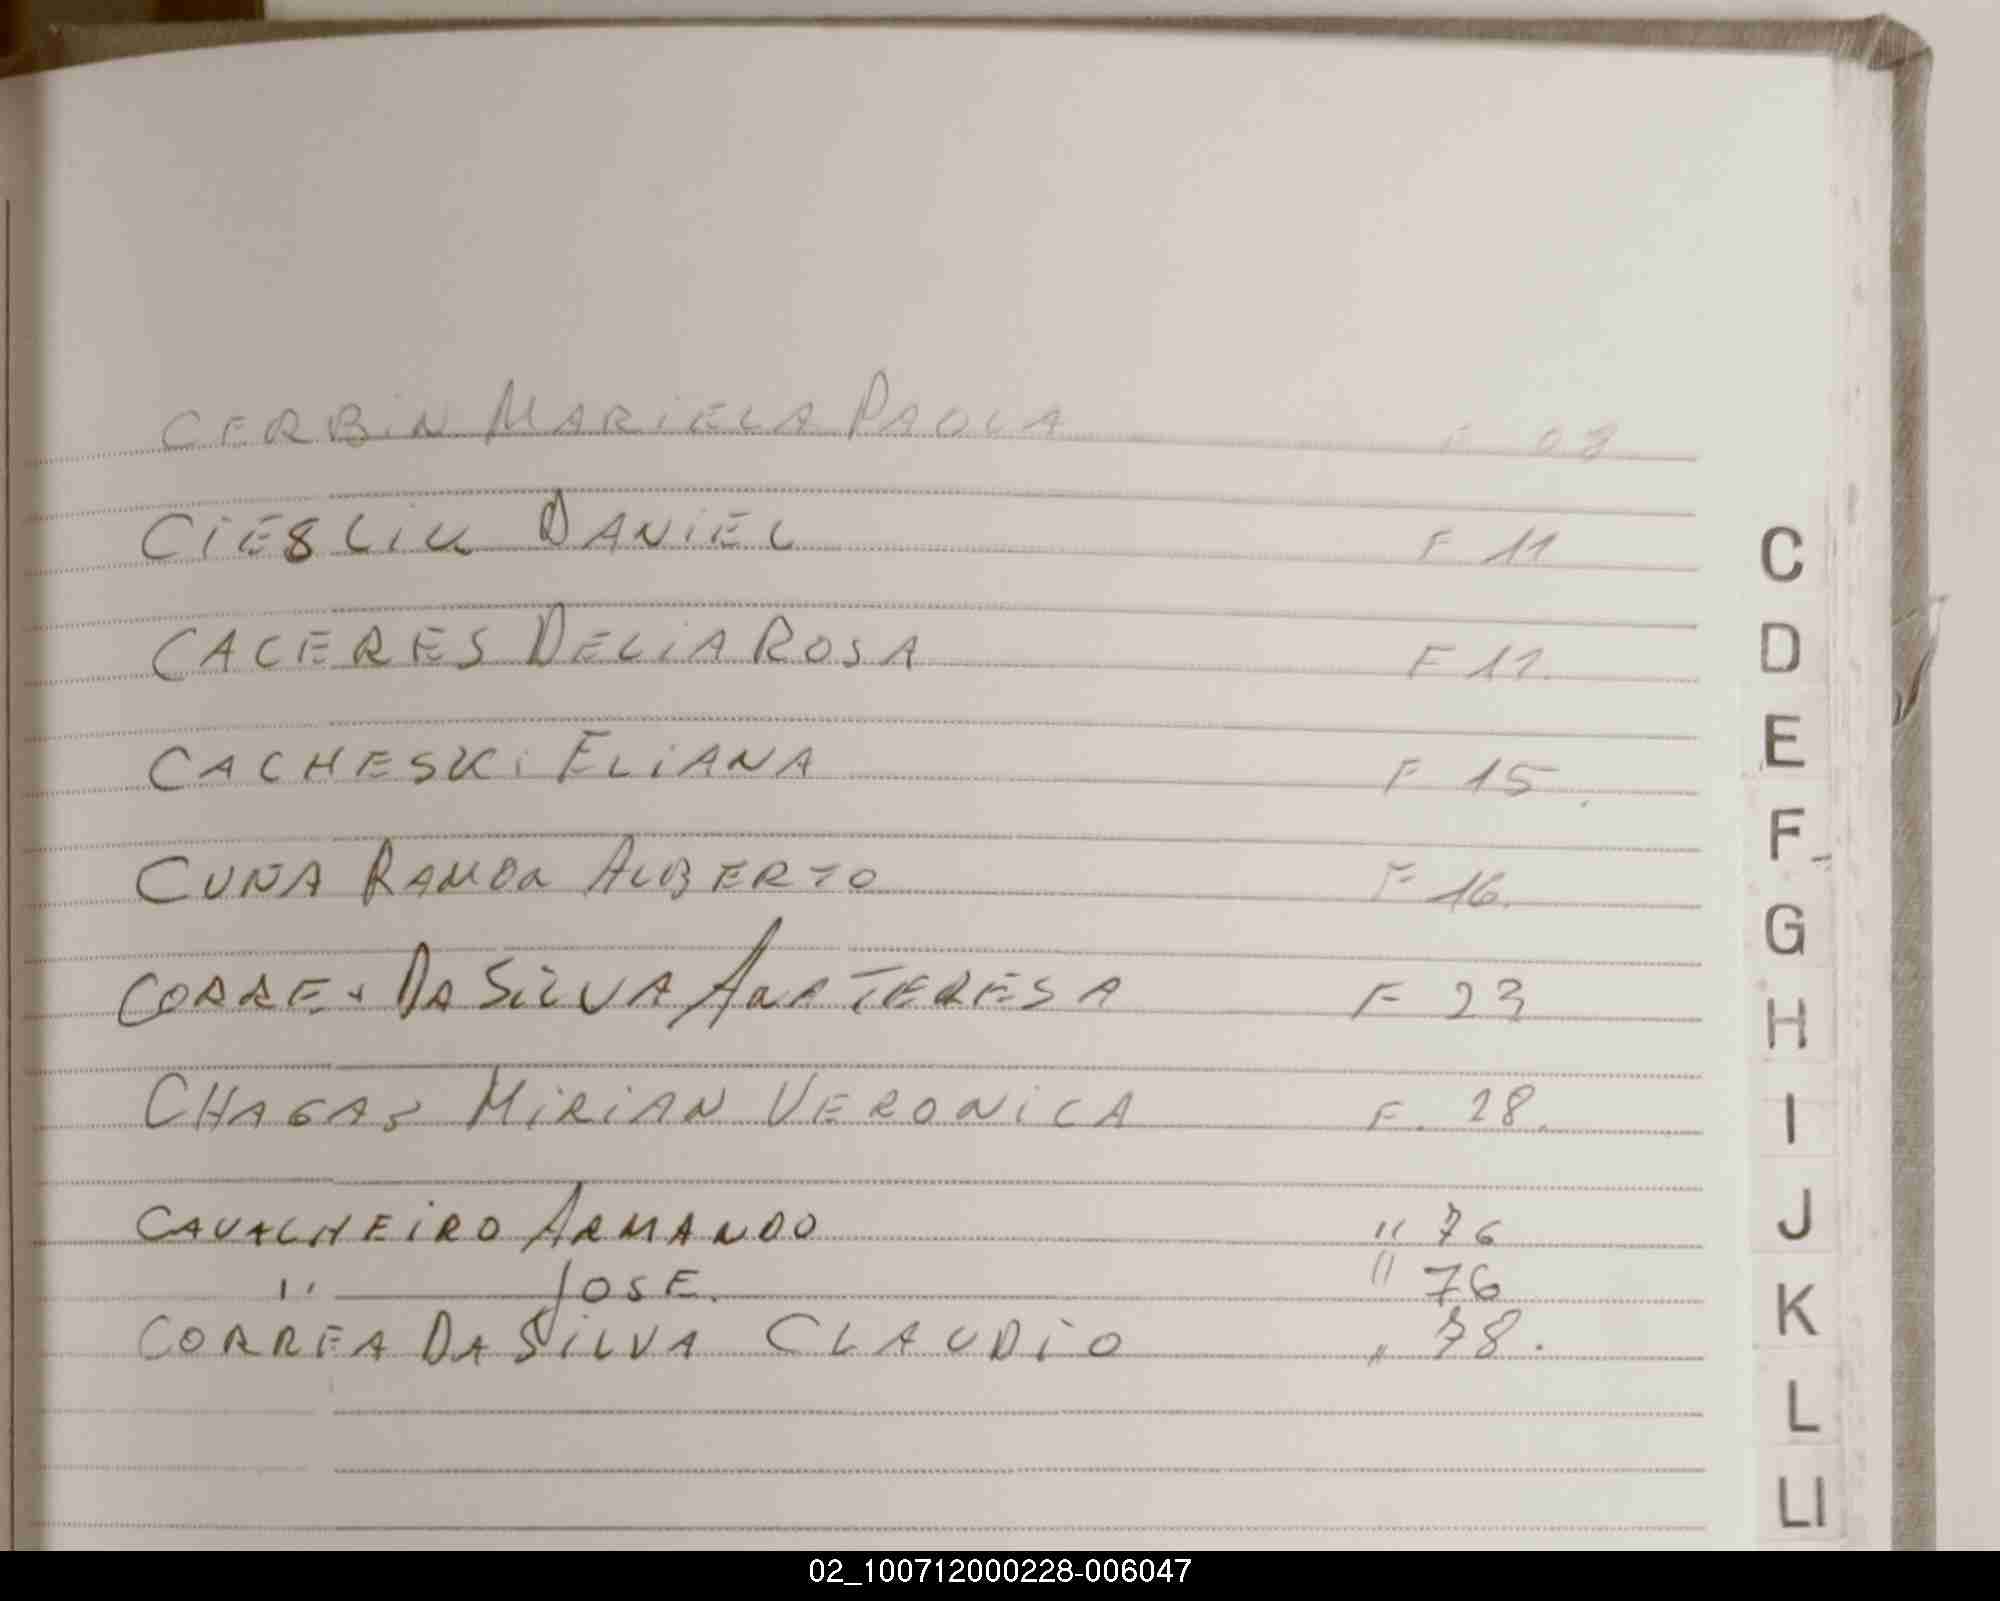 CERBiN MARiELA PAOLA F 08
CiESLiU DANiEL F 11
CACERES DELiA ROSA F 11.
CACHESKi ELiANA F 15.
CUNA RAMOn ALBERTO F 16.
CORREA DA SiLVA AnA TERESA F 23
CHAGAS MiRiAN VERONiCA F. 28.
CAVALHEiRO ARMANDO " 76
" JOSE. " 76
CORREA DA SiLVA CLAUDiO " 78.
C
D
E
F
G
H
I
J
K
L
Ll
02_100712000228-006047